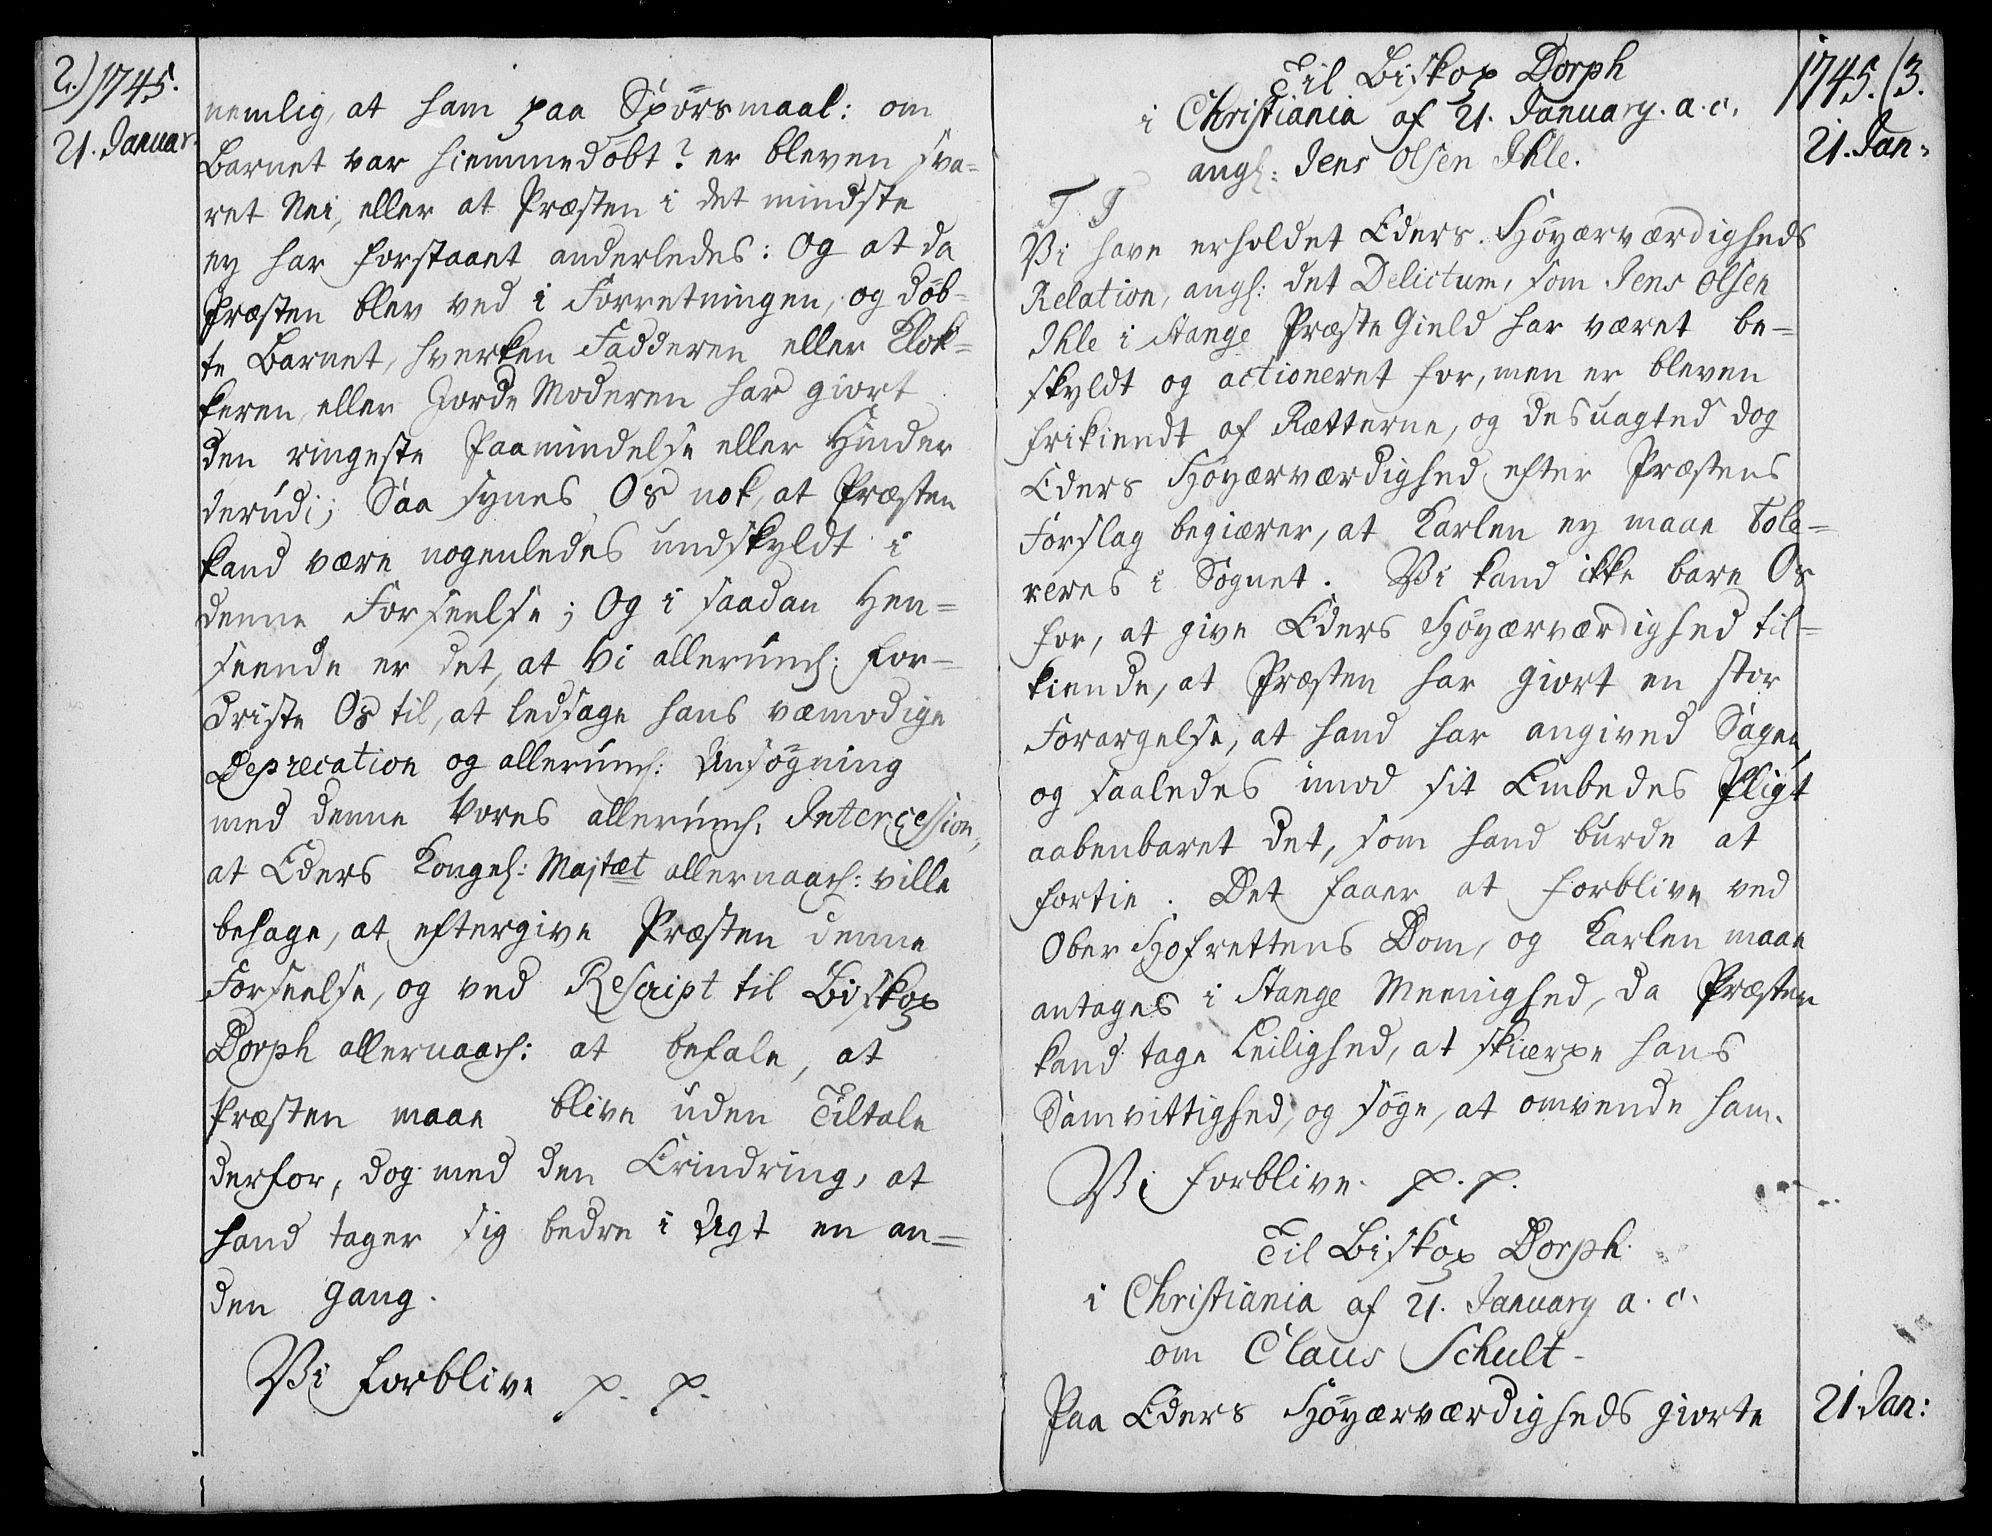 2.) 1745.
21. Januar.
nemlig, at ham paa Spørsmaal: om
Barnet var hiemmedøbt? er bleven sva=
ret Nei, eller at Præsten i det mindste
ey har forstaaet anderledes: Og at da
Præsten blev ved i Forretningen, og døb=
te Barnet, hverken Fadderen eller Klok=
keren, eller Jorde Moderen har giort
den ringeste Paamindelse eller Hinder
derudi; Saa synes Os nok, at Præsten
kand være nogenledes undskyldt i
denne Forseelse; Og i saadan Hen=
seende er det, at Vi allerund: for=
driste Os til, at ledsage hans væmodige
Deprecation og allerund: Ansøgning
med denne Vores allerund: Intercession,
at Eders Kongel: Majtæt allernaad: ville
behage, at eftergive Præsten denne
Forseelse, og ved Rescript til Biskop
Dorph allernaad: at befale, at
Præsten maae blive uden Tiltale
derfor, dog med den Erindring, at
hand tager sig bedre i Agt en an=
den gang.
Vi forblive p. p.
1745. (3.
Til Biskop Dorph
i Christiania af 21. January. a. c.
angl: Jens Olsen Ihle.
21. Jan:
T T
Vi have erholdet Eders Høyærværdigheds
Relation, angl: det Delictum, som Jens Olsen
Ihle i Stange Præste Gield har været be=
skyldt og actioneret for, men er bleven
frikiendt af Rætterne, og desuagted dog
Eders Høyærværdighed efter Præstens
Forslag begiærer, at Karlen ey maae tole=
reres i Sognet. Vi kand ikke bare Os
for, at give Eders Høyærværdighed til=
kiende, at Præsten har giort en stor
Forargelse, at hand har angived Sagen,
og saaledes imod sit Embedes Pligt
aabenbaret det, som hand burde at
fortie. Det faaer at forblive ved
Ober Hofrettens Dom, og Karlen maae
antages i Stange Meenighed, da Præsten
kand tage Leilighed, at skiærpe hans
Samvittighed, og søge, at omvende ham.
Vi forblive p. p.
Til Biskop Dorph
i Christiania af 21. January a. c.
om Claus Schult-
21 Jan:
Paa Eders Høyærværdigheds giorte